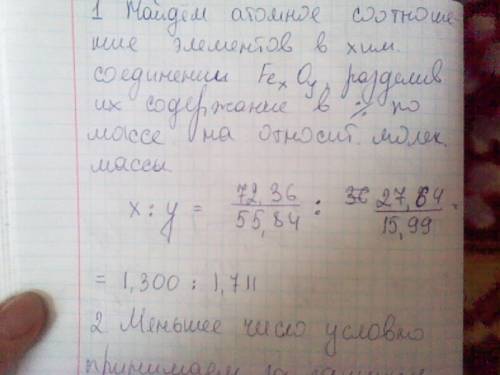 1 Найдем атомное соотноше
ние элементов в хим.
соединении FexOy, разделив
их содержание в % по
массе на относит. молек.
массы
x : y = 72,36/55,84 : 27,64/15,99
= 1,300 : 1,711
2 Меньшее число условно
принимаем за